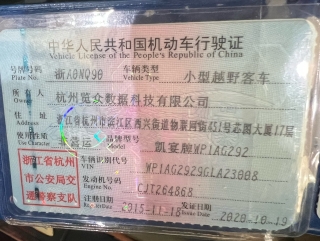 中华人民共和国机动车行驶证
Vehicle License of the People's Republic of China
号牌号码 浙A0NQ90 车辆类型 小型越野客车
Plate No. Vehicle Type
所有人 杭州览众数据科技有限公司
Owner
住址 浙江省杭州市滨江区西兴街道物联网街451号芯图大厦17层
Address
使用性质 营运 品牌型号 凯宴牌WP1AG292
Use Character Model
浙江省杭州市公安局交通警察支队
车辆识别代号 WP1AG2929GLA23008
VIN
发动机号码 CJT264868
Engine No.
注册日期 2015-11-18 发证日期 2020-10-19
Issue Date